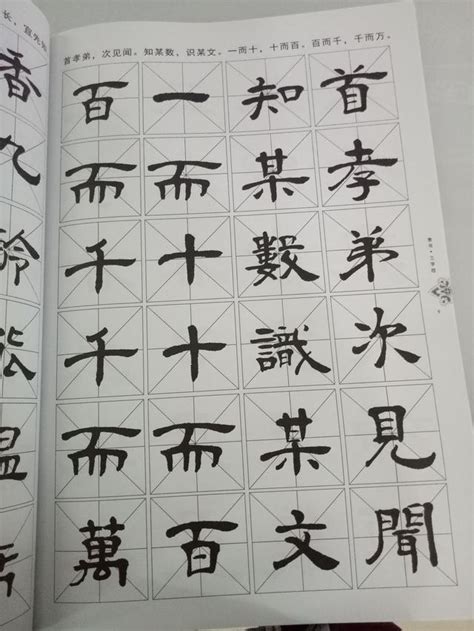 长，宜先
首孝弟，次见闻。知某数、识某文。一而十，十而百。百而千，千而万。
首孝弟次見聞
知某數識某文
一而十十而百
百而千千而萬
香九